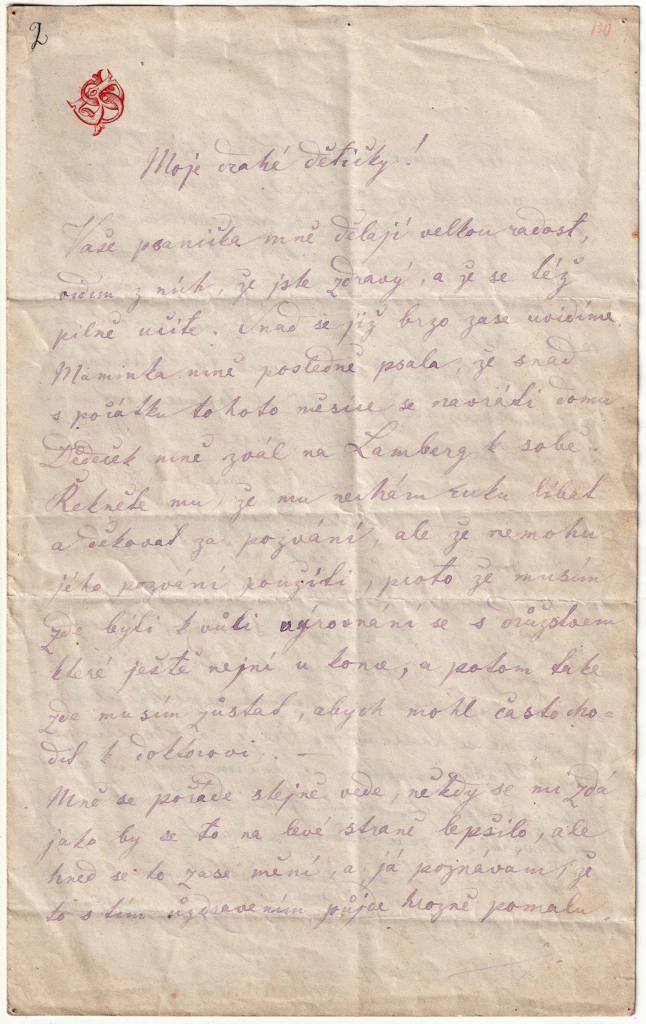 2
130
Moje drahé dětičky!
Vaše psaníčka mně dělají velkou radost,
vidím z nich, že jste zdravý, a že se též
pilně učíte. Snad se již brzo zase uvidíme.
Maminka mně posledně psala, že snad
s počátku tohoto měsíce se navrátí domu
Dědeček mně zval na Lamberg k sobě.
Řekněte mu, že mu nechám ruku líbat
a děkovat za pozvání, ale že nemohu
jeho pozvání použíti, proto že musím
zde býti k vůli vyrovnání se s družstvem
které ještě nejní u konce, a potom také
zde musím zůstat, abych mohl často cho=
dit k doktorovi. —
Mně se pořáde stejně vede, někdy se mi zdá
jako by se to na levé straně lepšilo, ale
hned se to zase mění, a já poznávám, že
to s tím uzdravením půjde hrozně pomalu.